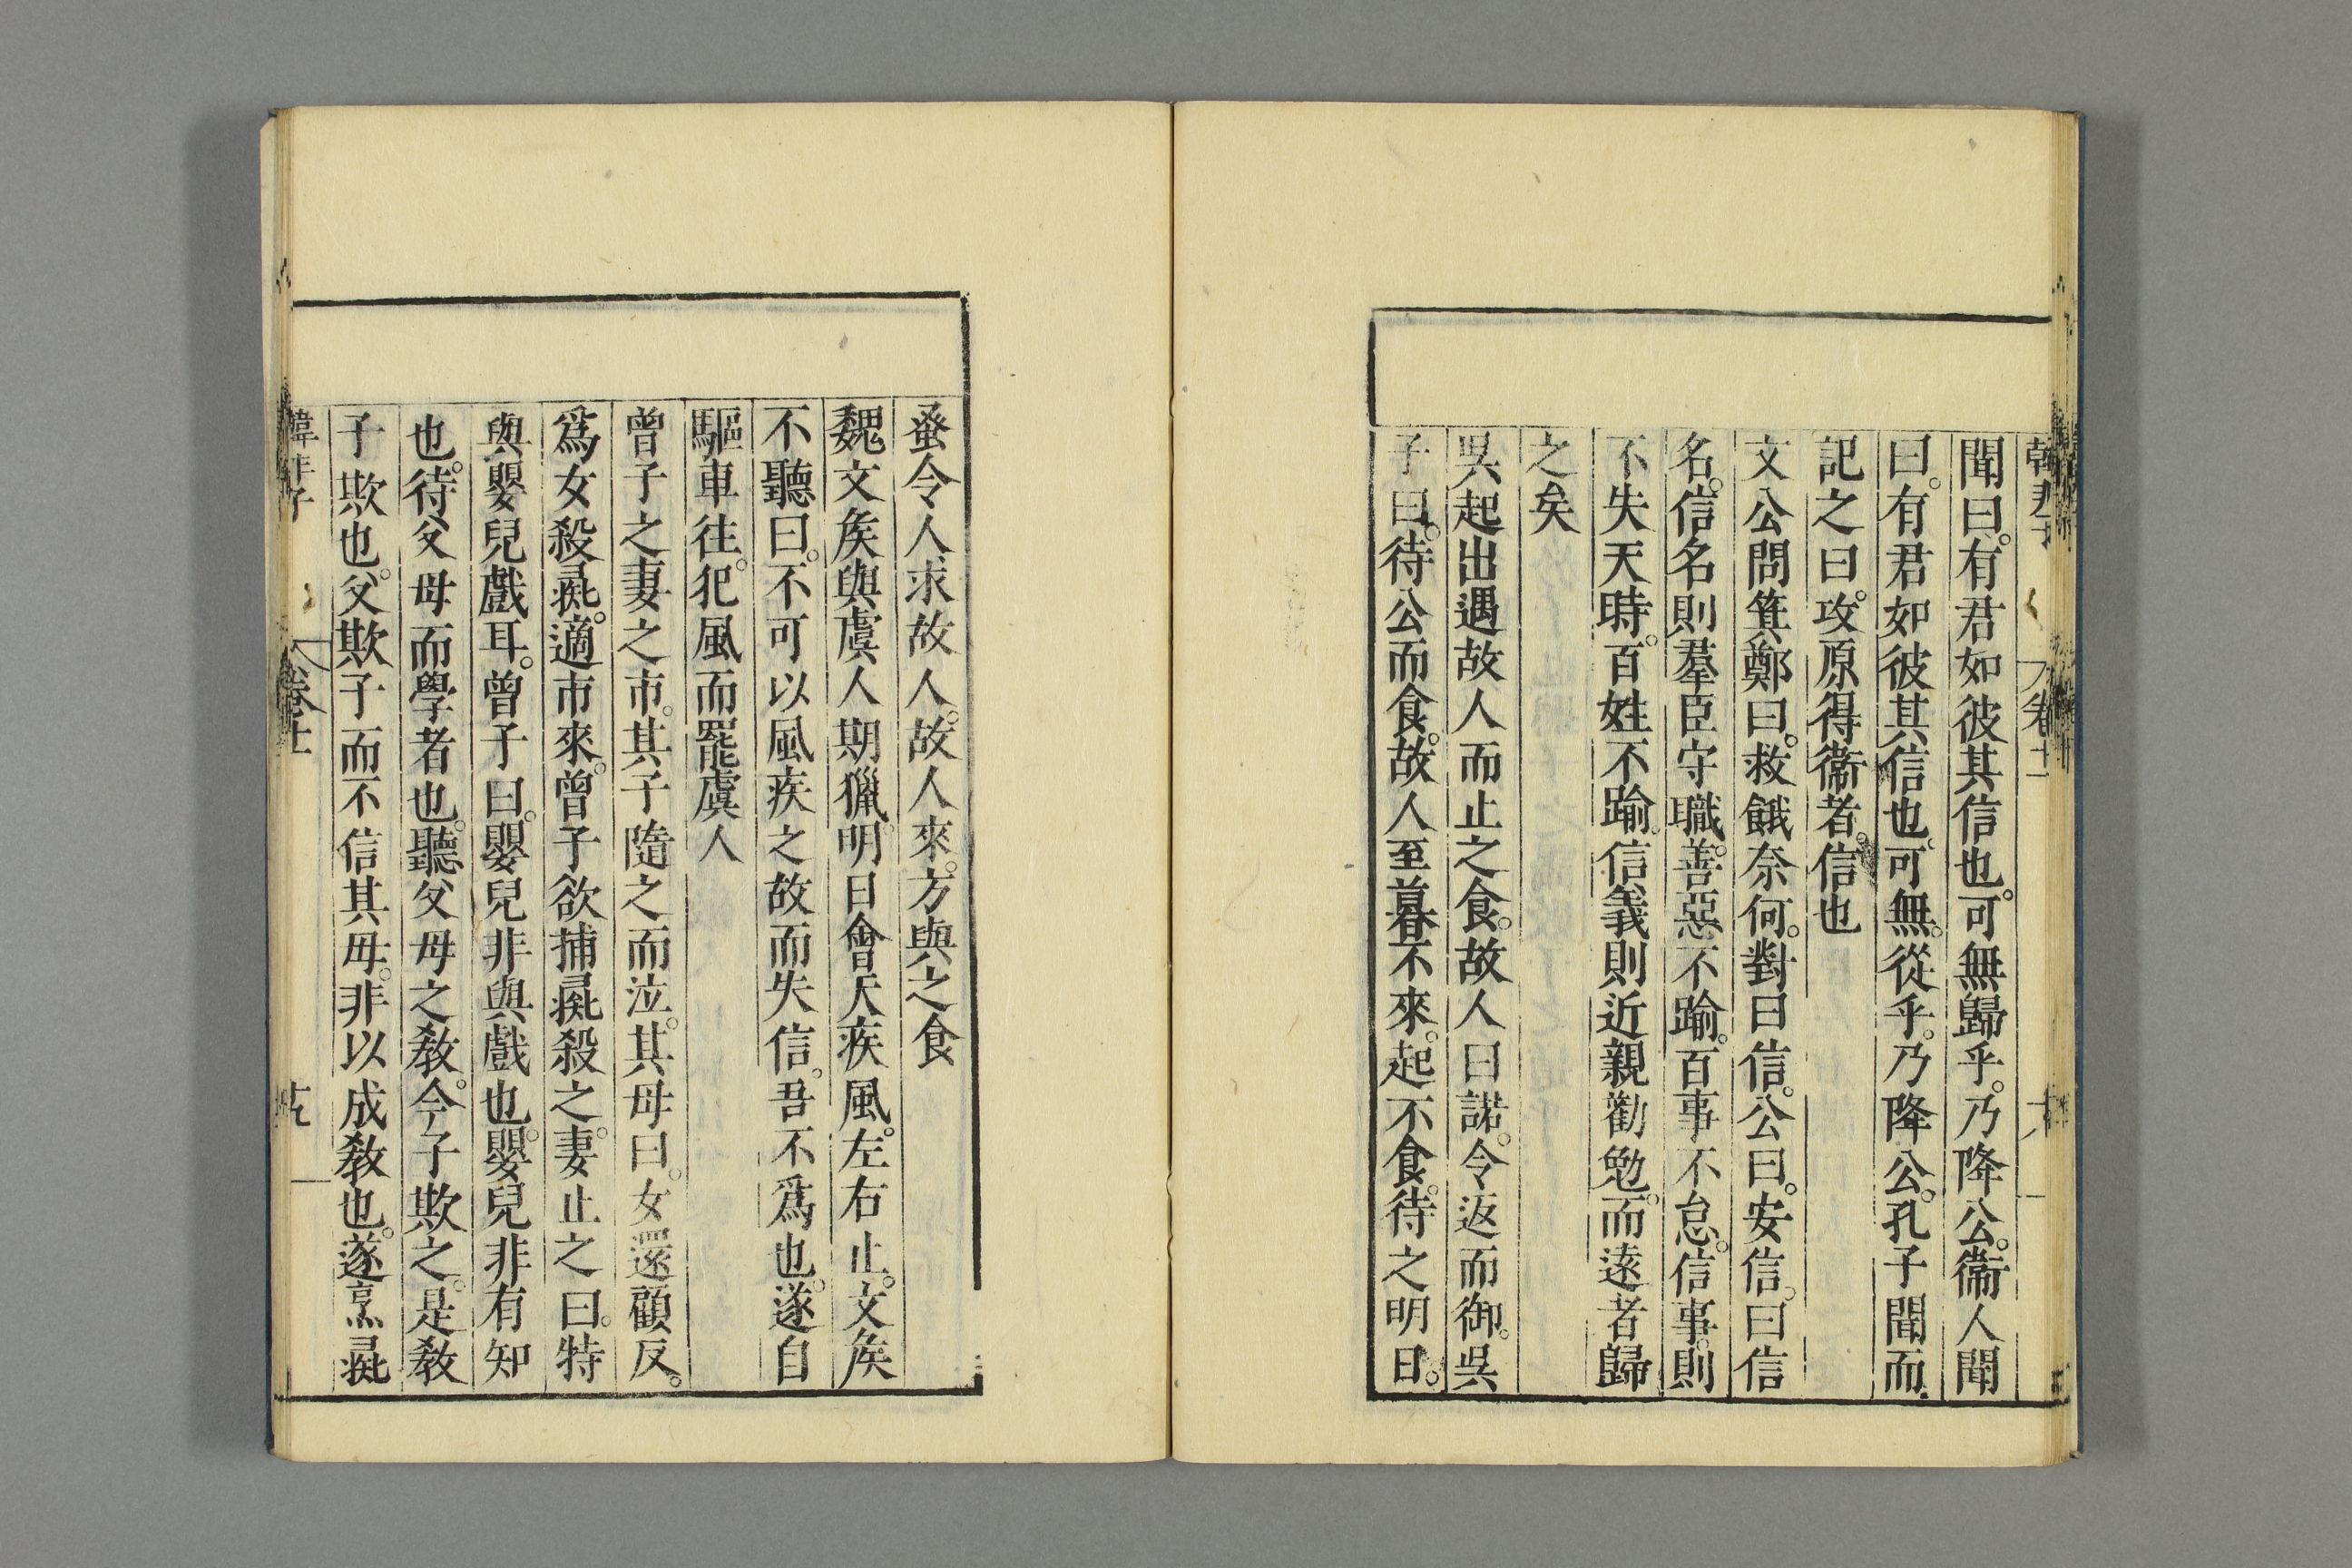 韓非子 卷十一 十八
聞曰。有君如彼其信也。可無歸乎。乃降公。衞人聞
曰。有君如彼其信也。可無從乎。乃降公。孔子聞而
記之曰。攻原得衞者。信也
文公問箕鄭曰。救餓奈何。對曰信。公曰。安信。曰信
名。信名則羣臣守職。善惡不踰。百事不怠。信事。則
不失天時。百姓不踰。信義則近親勸勉。而遠者歸
之矣
吳起出遇故人而止之食。故人曰諾。令返而御。吳
子曰。待公而食。故人至暮不來。起不食。待之明日。
蚤令人求故人。故人來。方與之食
魏文矦與虞人期獵。明日會天疾風。左右止。文矦
不聽曰。不可以風疾之故而失信。吾不爲也。遂自
驅車往。犯風而罷虞人
曾子之妻之市。其子隨之而泣。其母曰。女還顧反。
爲女殺彘。適市來。曾子欲捕彘殺之。妻止之曰。特
與嬰兒戲耳。曾子曰。嬰兒非與戲也。嬰兒非有知
也。待父母而學者也。聽父母之敎。今子欺之。是敎
子欺也。父欺子而不信其母。非以成敎也。遂烹彘
韓非子 卷十一 十九